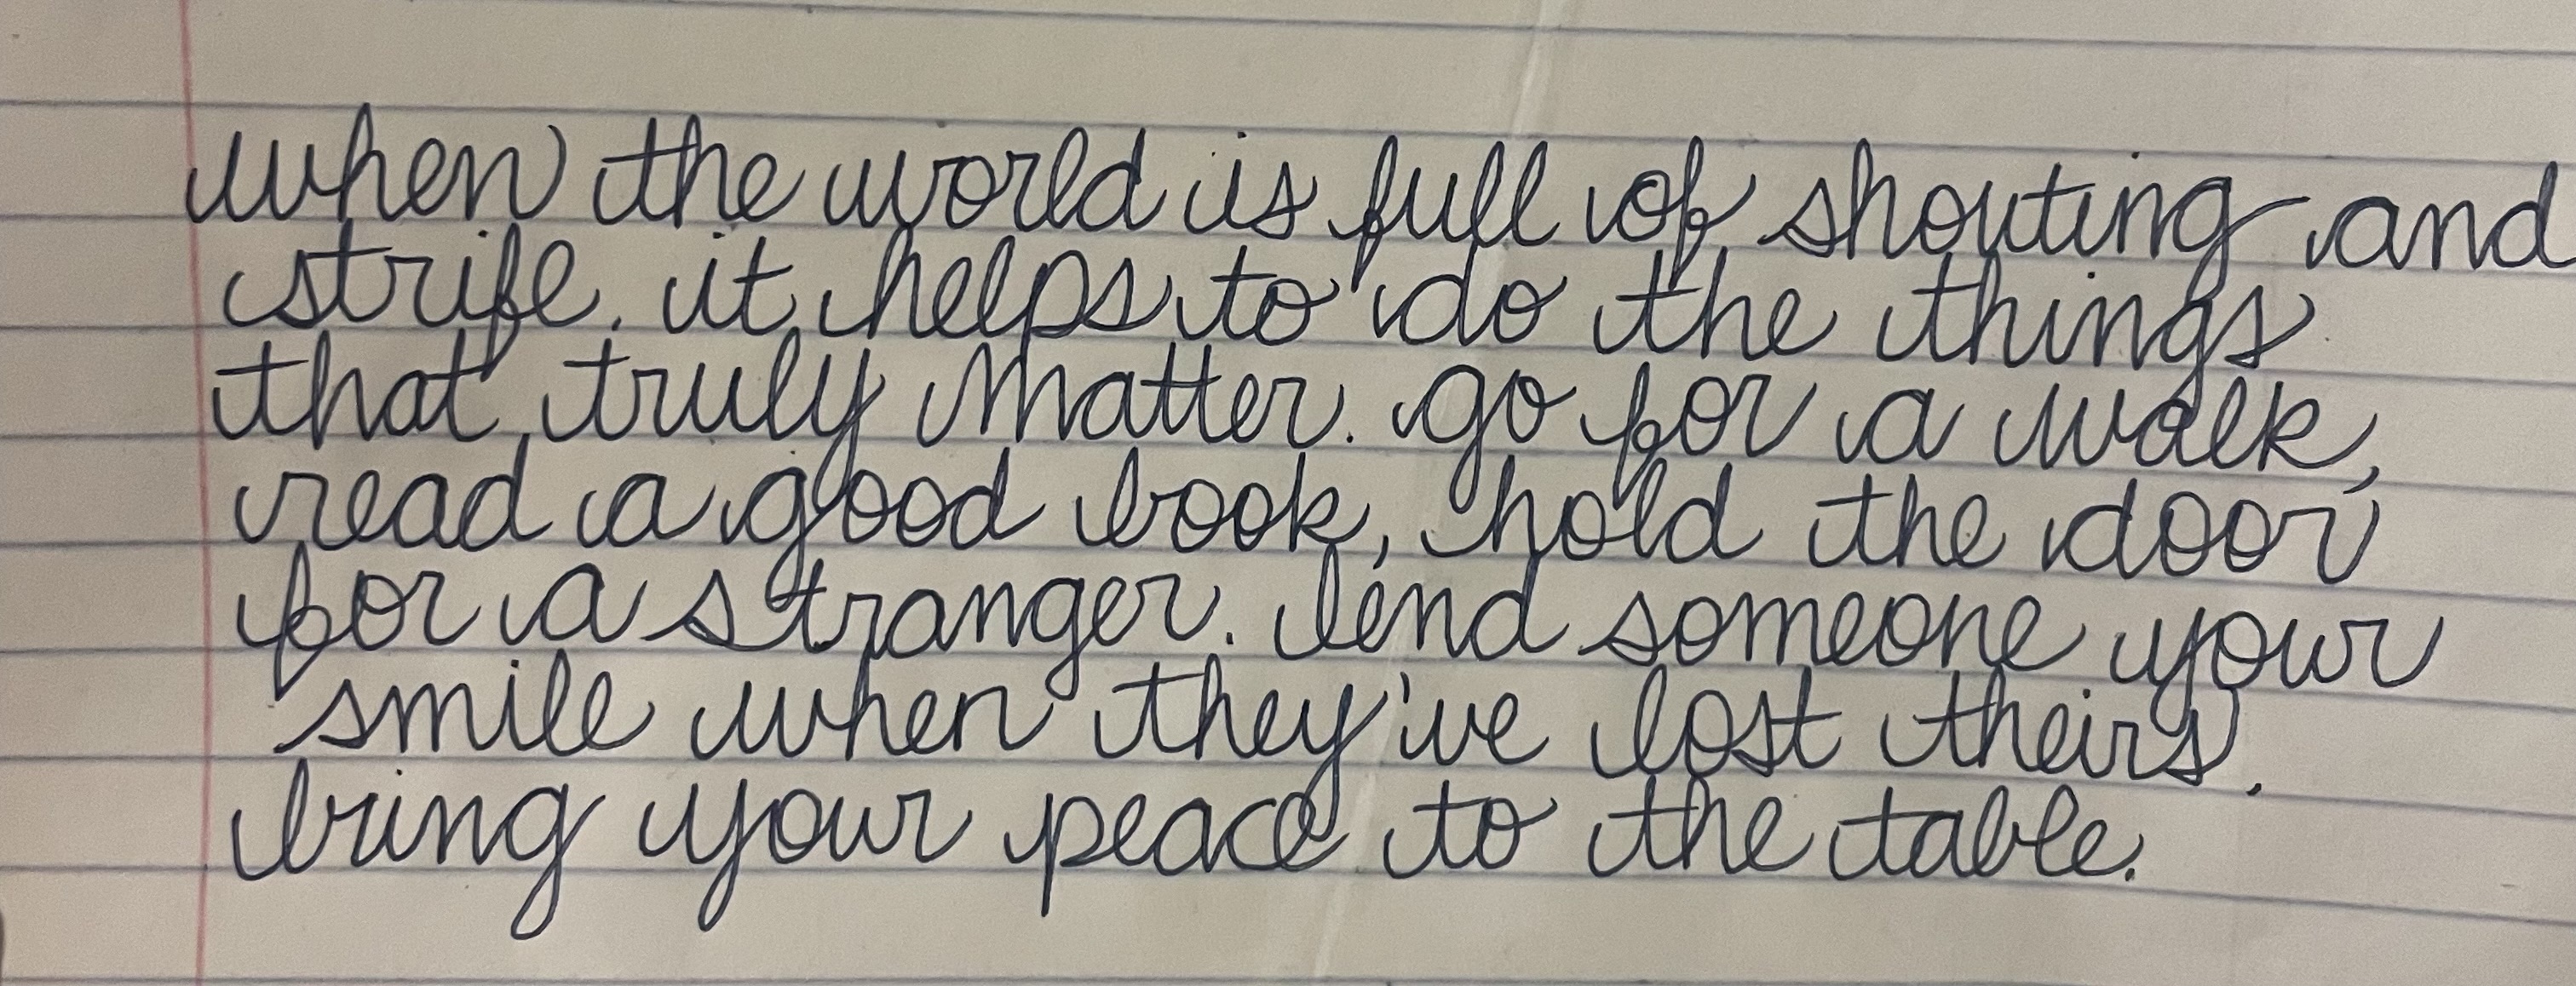 when the world is full of shouting and
strife, it helps to do the things
that truly matter. go for a walk,
read a good book, hold the door
for a stranger. lend someone your
smile when they've lost theirs.
bring your peace to the table.